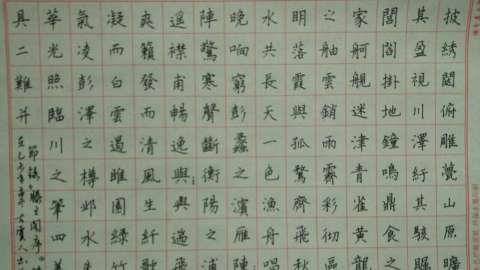 披綉闥俯雕甍山原曠
其盈視川澤紆其駭矚
閭閻掛地鐘鳴鼎食之
家舸艦迷津青雀黃龍
之舳雲銷雨霽彩彻區
明落霞與孤鶩齊飛秋
水共長天一色漁舟唱
晚响窮彭蠡之濱雁
陣驚寒聲斷衡陽之浦
遥襟甫暢逸興遄
爽籟發而清風生纖
凝而白雲遏睢園綠竹
氣凌彭澤之樽邺水朱
華光照臨川之筆四美
具二難并
節錄滕王閣序